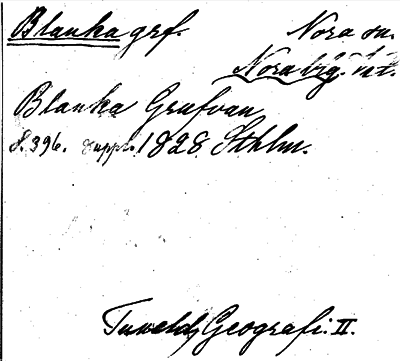 Blanka grf. Nora sn.
Nora bg. Vtl.
Blanka Grufvan
S. 396. uppl. 1828 Sthlm.
Tunelds Geografi. II.